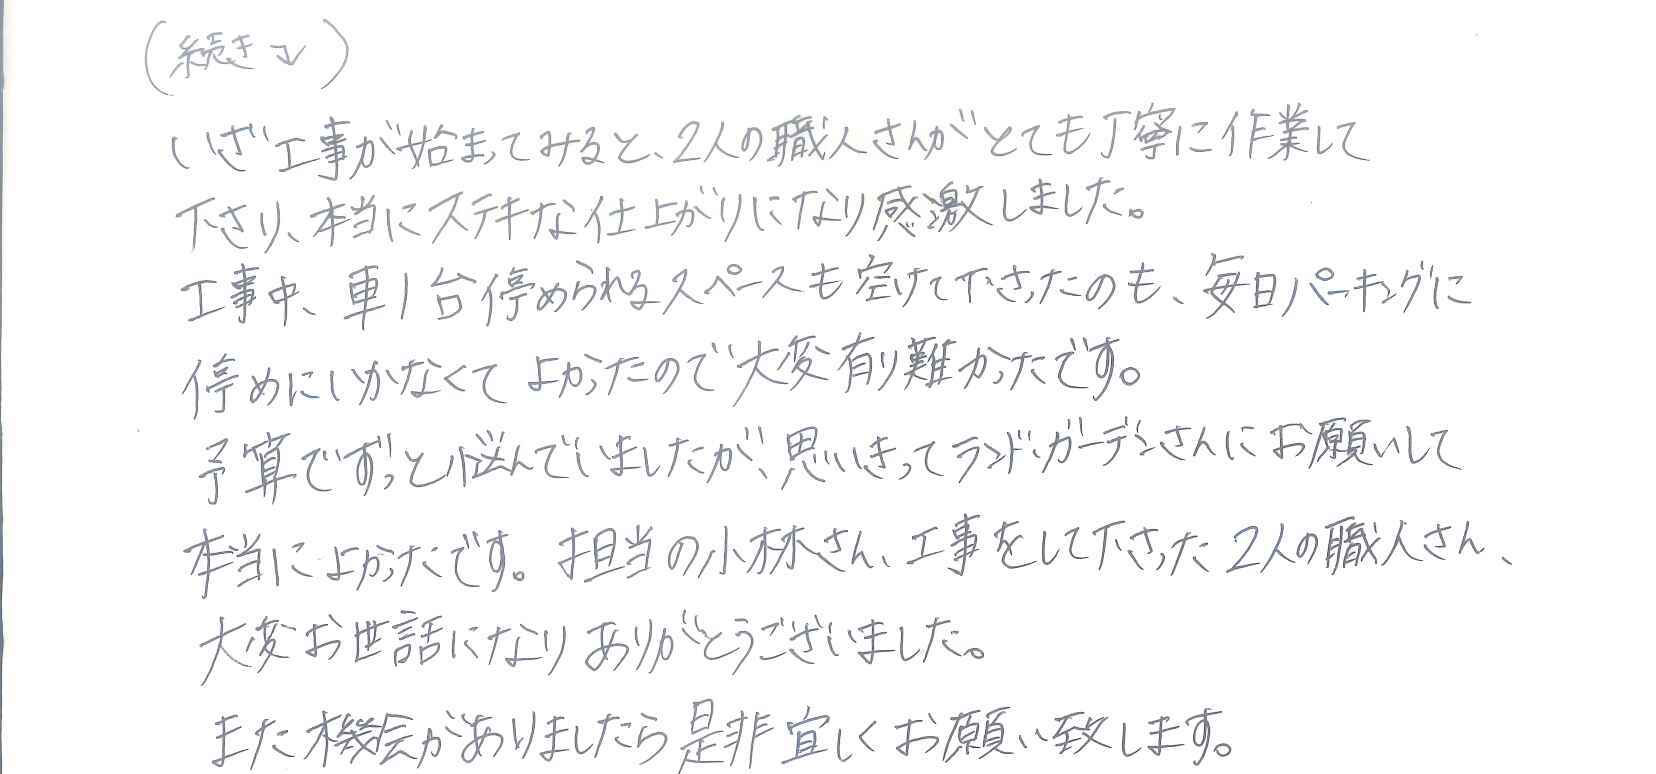 (続き↓)
いざ工事が始まってみると、2人の職人さんがとても丁寧に作業して
下さり、本当にステキな仕上がりになり感激しました。
工事中、車1台停められるスペースも空けて下さったのも、毎日パーキングに
停めにいかなくてよかったので大変有り難かったです。
予算でずっと悩んでいましたが、思いきってランドガーデンさんにお願いして
本当によかったです。担当の小林さん、工事をして下さった2人の職人さん、
大変お世話になりありがとうございました。
また機会がありましたら是非宜しくお願い致します。